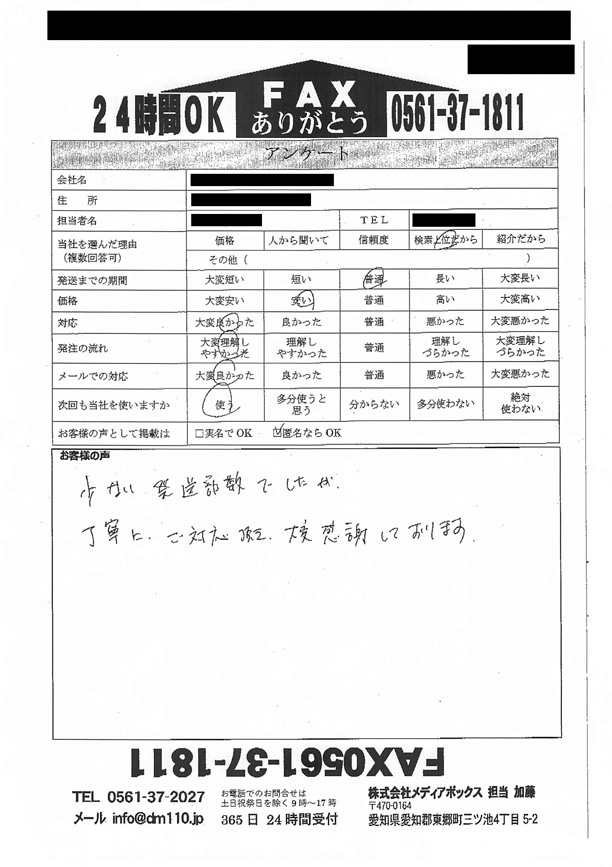 24時間OK
FAX
ありがとう
0561-37-1811
アンケート
会社名
住 所
担当者名 TEL
当社を選んだ理由
（複数回答可）
価格 人から聞いて 信頼度 検索上位だから 紹介だから
その他（ ）
発送までの期間 大変短い 短い 普通 長い 大変長い
価格 大変安い 安い 普通 高い 大変高い
対応 大変良かった 良かった 普通 悪かった 大変悪かった
発注の流れ 大変理解しやすかった 理解しやすかった 普通 理解しづらかった 大変理解しづらかった
メールでの対応 大変良かった 良かった 普通 悪かった 大変悪かった
次回も当社を使いますか 使う 多分使うと思う 分からない 多分使わない 絶対使わない
お客様の声として掲載は □実名でOK ☑匿名ならOK
お客様の声
少ない発送部数でしたが、
丁寧に、ご対応頂き、大変感謝しております。
FAX0561-37-1811
TEL 0561-37-2027
メール info@dm110.jp
お電話でのお問合せは
土日祝祭日を除く9時～17時
365日 24時間受付
株式会社メディアボックス 担当 加藤
〒470-0164
愛知県愛知郡東郷町三ツ池4丁目5-2